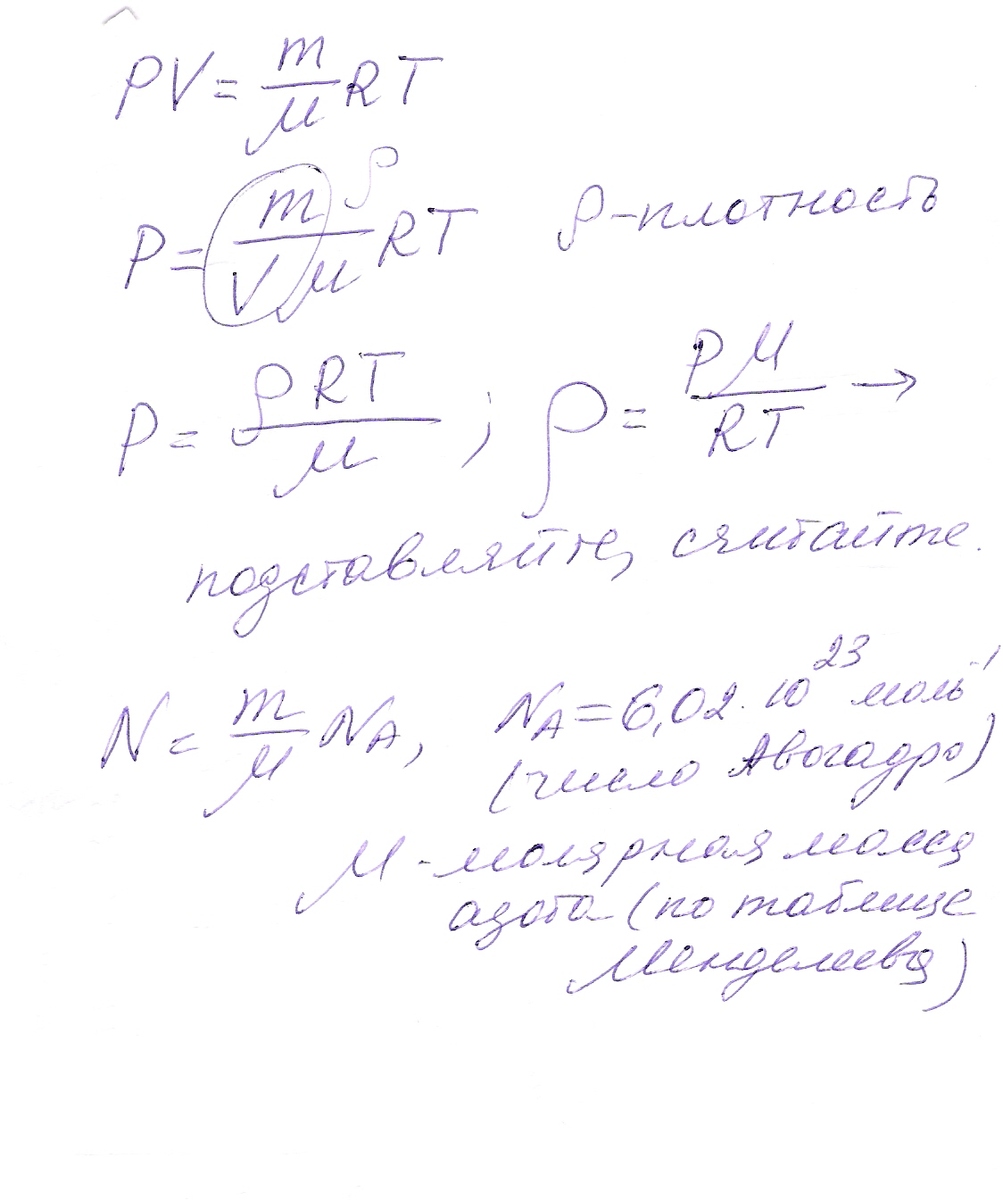 PV = m/μ RT
P = m/Vμ RT ρ ρ - плотность
P = ρRT/μ ; ρ = Pμ/RT →
подставляйте, считайте.
N = m/μ N_A, N_A = 6,02 · 10^23 моль^-1
(число Авогадро)
μ - молярная масса
азота (по таблице
Менделеева)